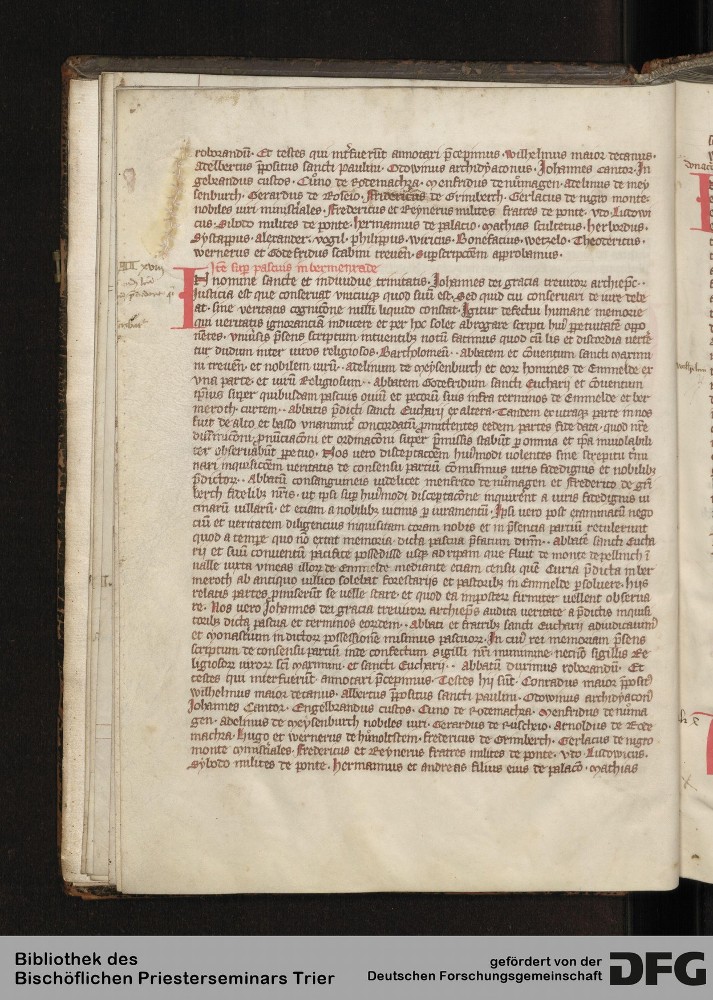 roborandū. Et testes qui int̄fuerūt annotari p̄cepimus. Wilhelmus maior decanus.
Adelbertus p̄positus sancti paulini. Otowinus archidyaconus. Johannes Cantor. In
gelbrandus custos. Cūno de Rodemachra. Menfridus de nūmagen. Adelinus de mey
senburch. Gerardus de Roseio. Fridericus de Grimberch. Gerlacus de nigro monte.
nobiles uiri. ministiales. Fredericus et Reynerus milites fratres de ponte. vdo Ludowi
cus. Sibodo milites de ponte. hermannus de palacio. Mathias scultetus. herbodus.
Systappus. Alexander. vogil. philippus. waricus. Bonefacius. wetzelo. Theodericus.
wernerus et Godefridus scabini treueñ. supscriptōem approbamus.
Itē sup pascuis in bermenrade
In nomine sancte et indiuidue trinitatis. Johannes dei gracia treuiror archiepc̄.
Iusticia est que conseruat vnicuiq quod suū est. Sed quid cui conseruari de iure debe
at. sine veritatis cognicōne nulli liquido constat. Igitur defectui humane memorie
qui veritatis ignoranciā inducere et per hoc solet abrogare scripti hui᷒ perpetuitate oppo
nētes. vniūsis p̄sens scriptum intuentib notū facimus quod cū lis et discordia verte
tur dudum inter uiros religiosos. Bartholomeū.. abbatem et cōuentum sancti maximi
ni treueñ. et nobilem uirū. Adelinum de Meysenburch et eor homines de Emmelde ex
vna parte. et uirū Religiosum.. abbatem Godefridum sancti Eucharii et cōuentum
ip̄ius super quibusdam pascuis ouiū et pecorū suis infra terminos de Emmelde et ber
meroth. curtem.. abbatis p̄dicti sancti Eucharii ex altera. Tandem ex utraq parte in nos
fuit de alto et basso vnanimit᷒ concordatū p̄mittentes eedem partes fide data. quod nr̄e
diffinicōni. p̄nūciacōni et ordinacōni super p̄missis stabūt p omnia et ip̄a inuiolabili
ter obseruabūt ppetuo. Nos vero disceptacōem hui᷒modi uolentes sine strepitu t᷒mi
nari inquisicōem ueritatis de consensu partiū cōmisimus uiris fidedignis et nobilib
p̄dictor.. Abbatū consanguineis uidelicet menfrido de nūmagen et Frederico de grī
berch fidelib nr̄is. ut ipsi sup hui᷒modi disceptacōne inquirent a uiris fidedignis ui
cinarū uillarū. et eciam a nobilib uicinis p iuramentū. Ipsi uero post examinatū nego
ciū et ueritatem diligencius inquisitam coram nobis et in p̄sencia partiū retulerunt
quod a tempe quo nō extat memoria. dicta pascua p̄fatum dnm̄.. abbatē sancti Eucha
rii et suū conuentū pacifice possedisse usq ad ripam que fluit de monte depellinch ī
ualle iuxta vineas illor de Emmelde mediante eciam censu quē Curia p̄dicta in ber
meroth ab antiquo uillico solebat forestariis et pastorib in Emmelde psoluere. hiis
relatis partes p̄miserūt se uelle stare. et quod ea impostex firmiter uellent obserua
re. Nos uero Johannes dei gracia treuiror archiep̄s audita veritate a p̄dictis inquisi
torib dicta pascua et terminos eordem.. Abbati et fratrib sancti Eucharii adiudicauim᷒
et monasterium in dictor possessione misimus pascuor. In cui᷒ rei memoriam p̄sens
scriptum de consensu partiū inde confectum sigilli nr̄i munimine. necnō sigillis Re
ligiosor uiror sc̄i Maximini. et sancti Eucharii.. abbatū duximus roborandū. Et
testes qui interfuerūt annotari p̄cepimus. Testes hij sūt. Conradus maior p̄posit᷒
Wilhelmus maior decanus. Albertus p̄positus sancti paulini. Otowinus archidyacon᷒
Johannes Cantor. Engelbrandus custos. Cuno de Rodemachra. Menfridus de nūma
gen. Adelinus de Meysenburch nobiles uiri. Gerardus de Ruscheio. Arnoldus de Rode
machra. Hugo et wernerus de hūnoltstein. fredericus de Grimberch. Gerlacus de nigro
monte ministiales. Fredericus et Reynerus fratres milites de ponte. vdo Ludowicus.
Sybodo milites de ponte. Hermannus et andreas filius eius de palacō. Mathias
Bibliothek des
Bischöflichen Priesterseminars Trier
gefördert von der
Deutschen Forschungsgemeinschaft
DFG